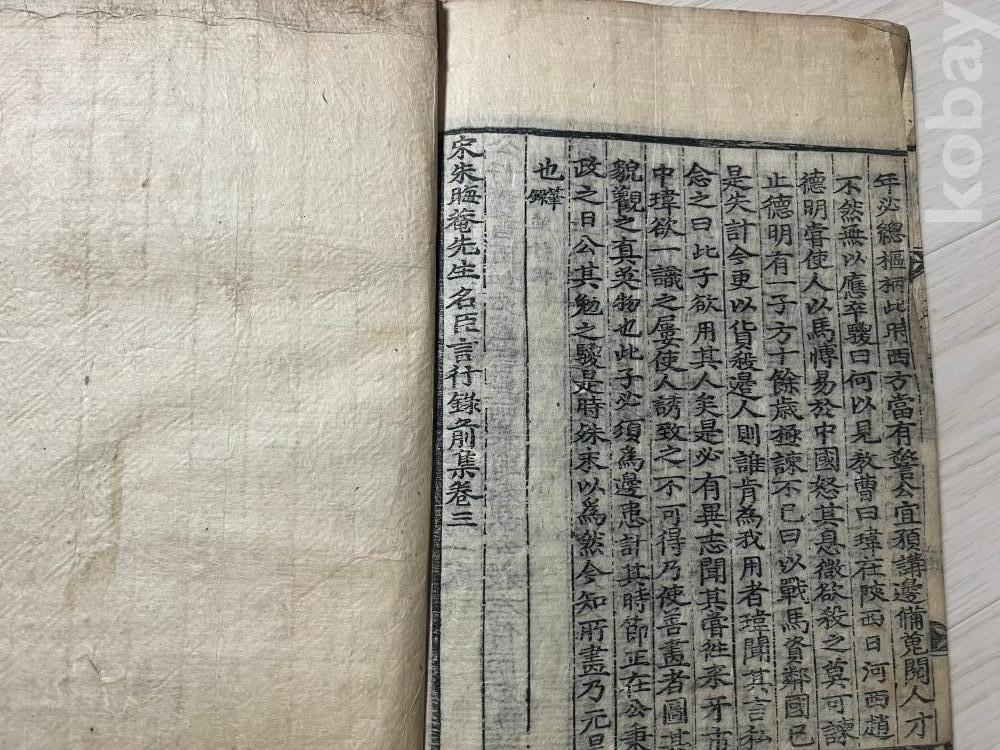 年必總樞柄此時西方當有警公宜預講邊備蒐閱人才
不然無以應卒鬷曰何以見教曹曰瑋在陝西日河西趙
德明嘗使人以馬愽易於中國怒其息微欲殺之莫可諫
止德明有一子方十餘歲極諫不已曰以戰馬資鄰國已
是失計今更以貨殺邊人則誰肯為我用者瑋聞其言私
念之曰此子欲用其人矣是必有異志聞其嘗徃来牙市
中瑋欲一識之屢使人誘致之不可得乃使善畫者圖其
貌觀之真英物也此子必須為邊患計其時節正在公秉
政之日公其勉之鬷是時殊未以為然今知所畫乃元昊
也
宋朱晦菴先生名臣言行錄前集卷三
kobay